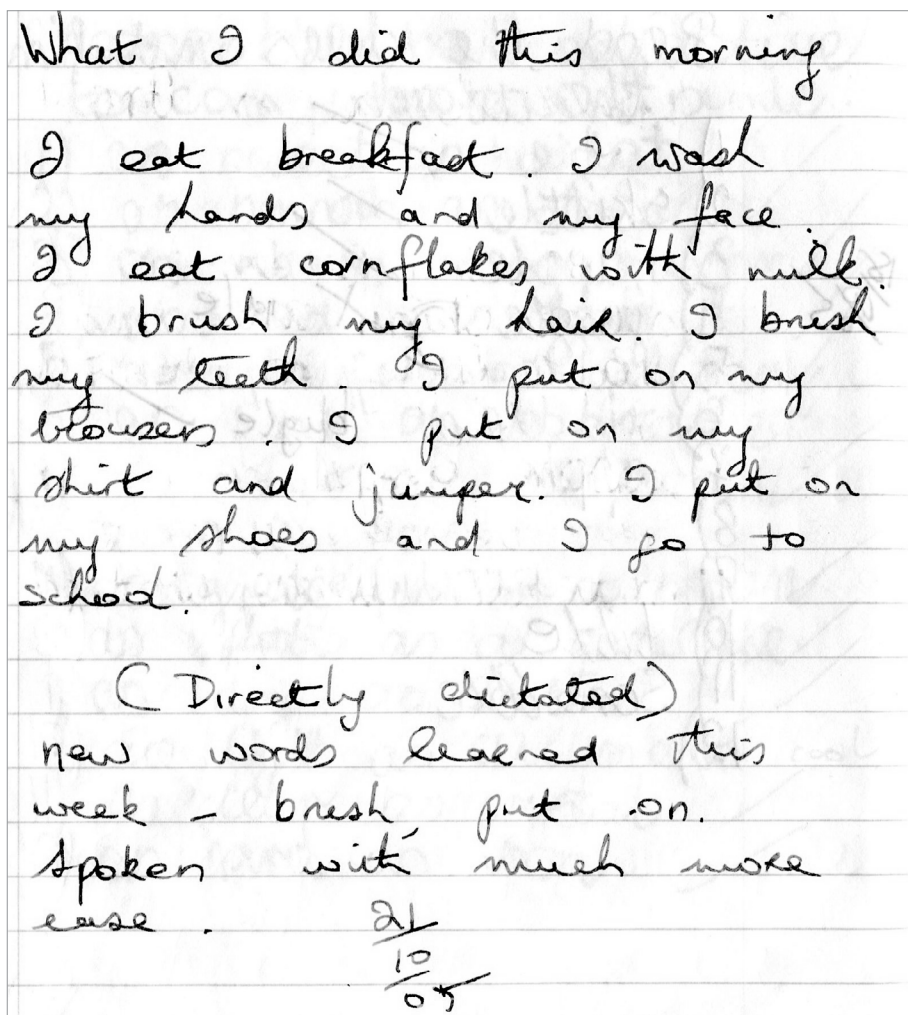 What I did this morning
I eat breakfast. I wash
my hands and my face.
I eat cornflakes with milk.
I brush my hair. I brush
my teeth. I put on my
trousers. I put on my
shirt and jumper. I put on
my shoes and I go to
school.
(Directly dictated)
new words learned this
week - brush, put on.
Spoken with much more
ease.
21
10
05